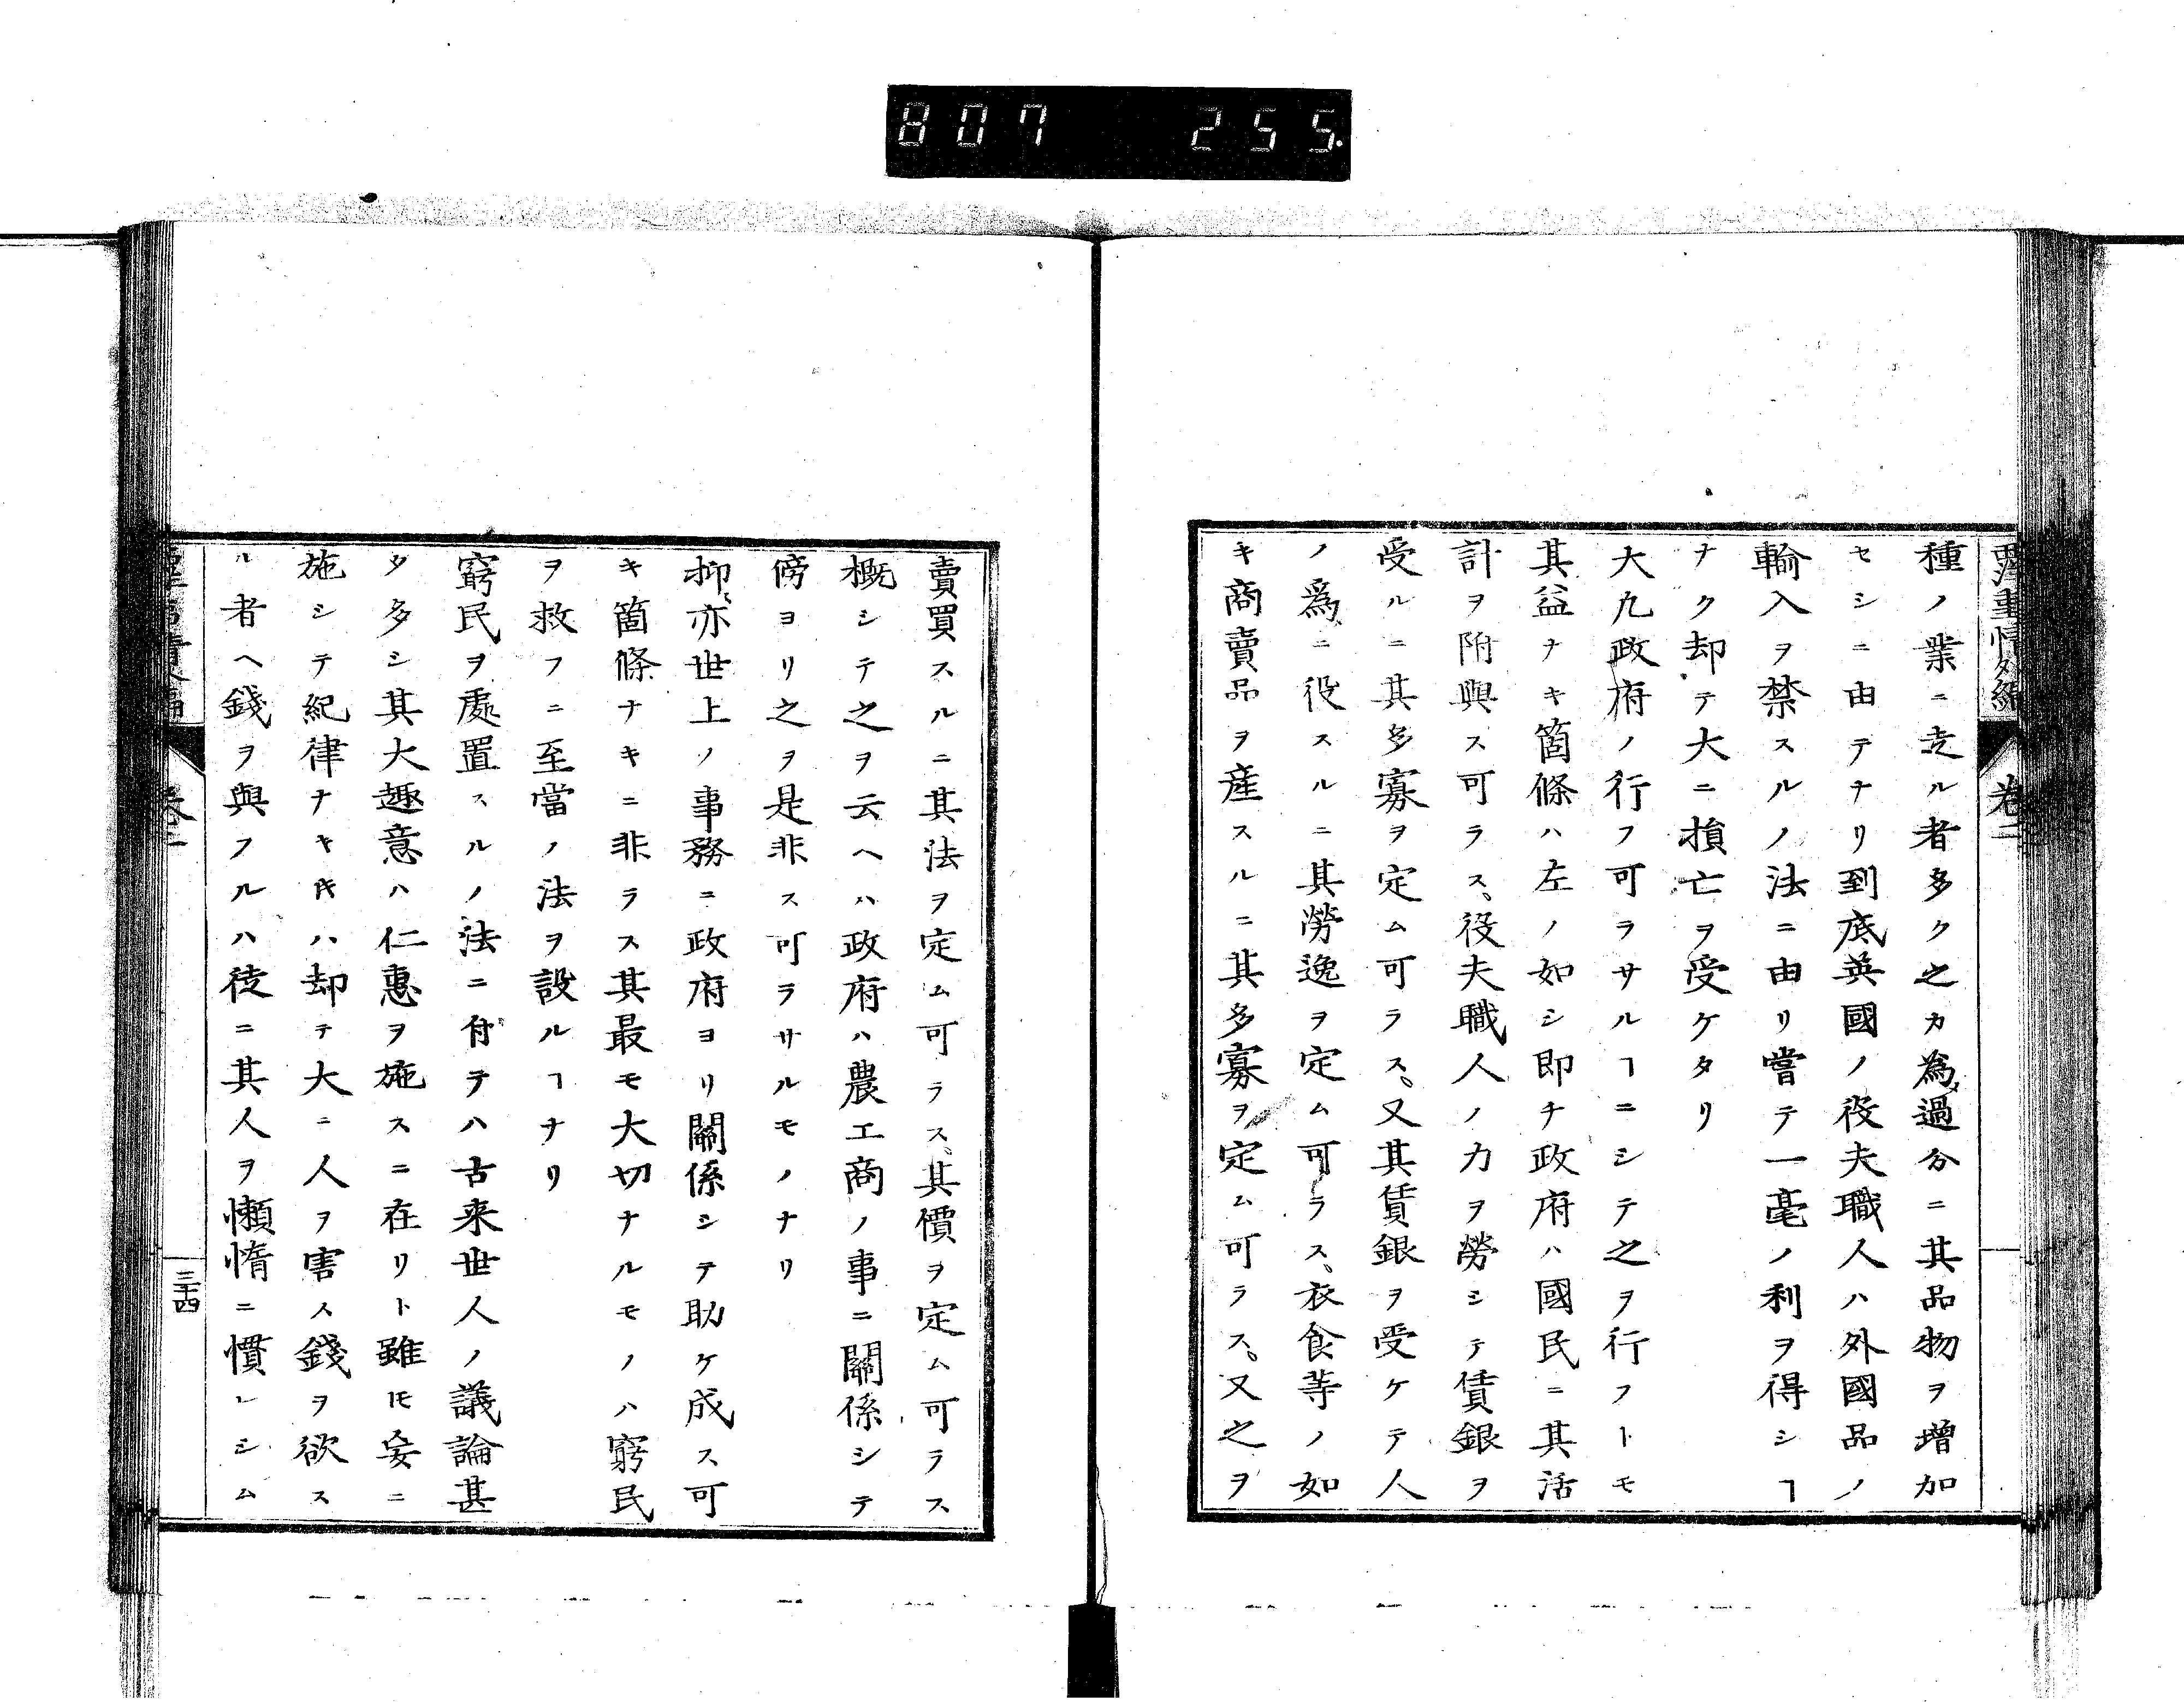 807 255
種ノ業ニ走ル者多ク之カ為メ過分ニ其品物ヲ増加
セシニ由テナリ到底英國ノ役夫職人ハ外國品ノ
輸入ヲ禁スルノ法ニ由リ嘗テ一毫ノ利ヲ得シヿ
ナク却テ大ニ損亡ヲ受ケタリ
大凡政府ノ行フ可ラサルヿニシテ之ヲ行フトモ
其益ナキ箇條ハ左ノ如シ即チ政府ハ國民ニ其活
計ヲ附與ス可ラス、役夫職人ノ力ヲ勞シテ賃銀ヲ
受ルニ其多寡ヲ定ム可ラス。又其賃銀ヲ受ケテ人
ノ為ニ役スルニ其勞逸ヲ定ム可ラス、衣食等ノ如
キ商賣品ヲ産スルニ其多寡ヲ定ム可ラス。又之ヲ
賣買スルニ其法ヲ定ム可ラス、其價ヲ定ム可ラス
概シテ之ヲ云ヘハ政府ハ農工商ノ事ニ關係シテ
傍ヨリ之ヲ是非ス可ラサルモノナリ
抑〻亦世上ノ事務ニ政府ヨリ關係シテ助ケ成ス可
キ箇條ナキニ非ラス其最モ大切ナルモノハ窮民
ヲ救フニ至當ノ法ヲ設ルヿナリ
窮民ヲ處置スルノ法ニ付テハ古来世人ノ議論甚
タ多シ其大趣意ハ仁惠ヲ施スニ在リト雖𪜈妄ニ
施シテ紀律ナキ𪜈ハ却テ大ニ人ヲ害ス錢ヲ欲ス
ル者ヘ錢ヲ與フルハ徒ニ其人ヲ懶惰ニ慣レシム
卷二
三十四